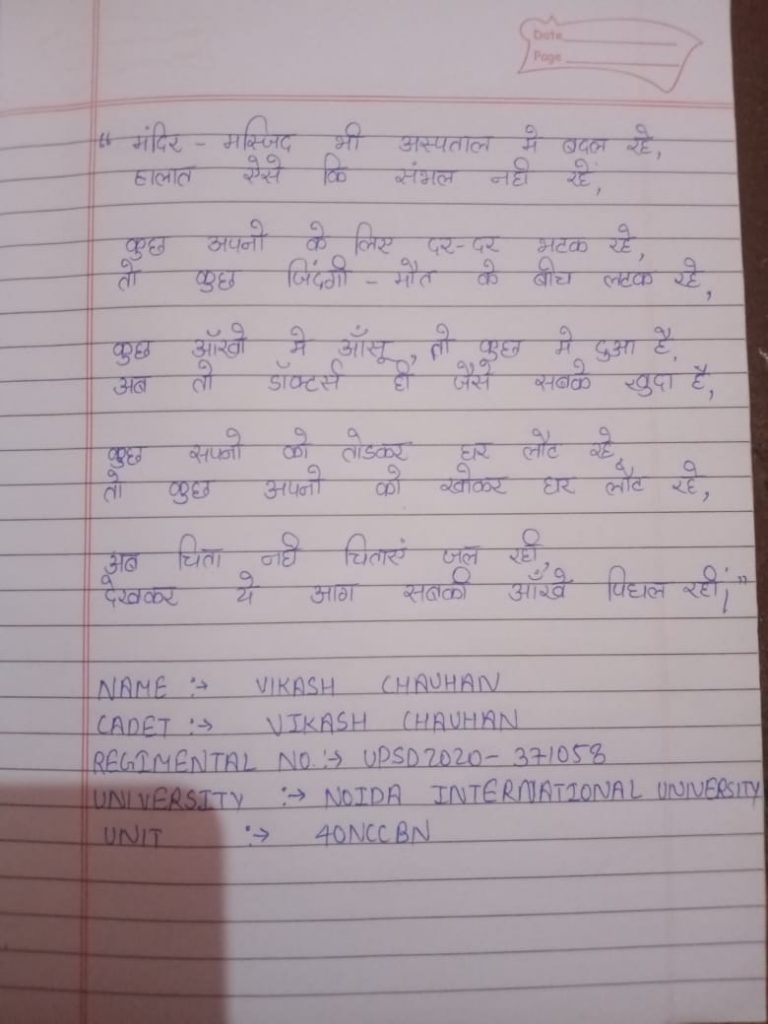 Date
Page
“ मंदिर - मस्जिद भी अस्पताल मे बदल रहे,
हालात ऐसे कि संभल नही रहें,
कुछ अपनो के लिए दर-दर भटक रहे,
तो कुछ जिंदगी - मौत के बीच लटक रहे,
कुछ आँखो मे आँसू, तो कुछ मे दुआ है,
अब तो डॉक्टर्स ही जैसे सबके खुदा है,
कुछ सपनो को तोडकर घर लौट रहे,
तो कुछ अपनो को खोकर घर लौट रहे,
अब चिता नही चिताएं जल रही,
देखकर ये आग सबकी आँखे पिघल रही¡”
NAME :→ VIKASH CHAUHAN
CADET :→ VIKASH CHAUHAN
REGIMENTAL NO. :→ UPSD2020- 371058
UNIVERSITY :→ NOIDA INTERNATIONAL UNIVERSITY
UNIT :→ 40NCCBN